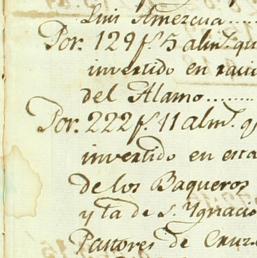 Luis Amezcua......
Por. 129 f.s 5 alm.s qu
invertido en raci
del Alamo........
Por. 222 f.s 11 alm.s q
invertido en esta
de los Baqueros
y ta de S. Ygnacio
Pastores de Cruz